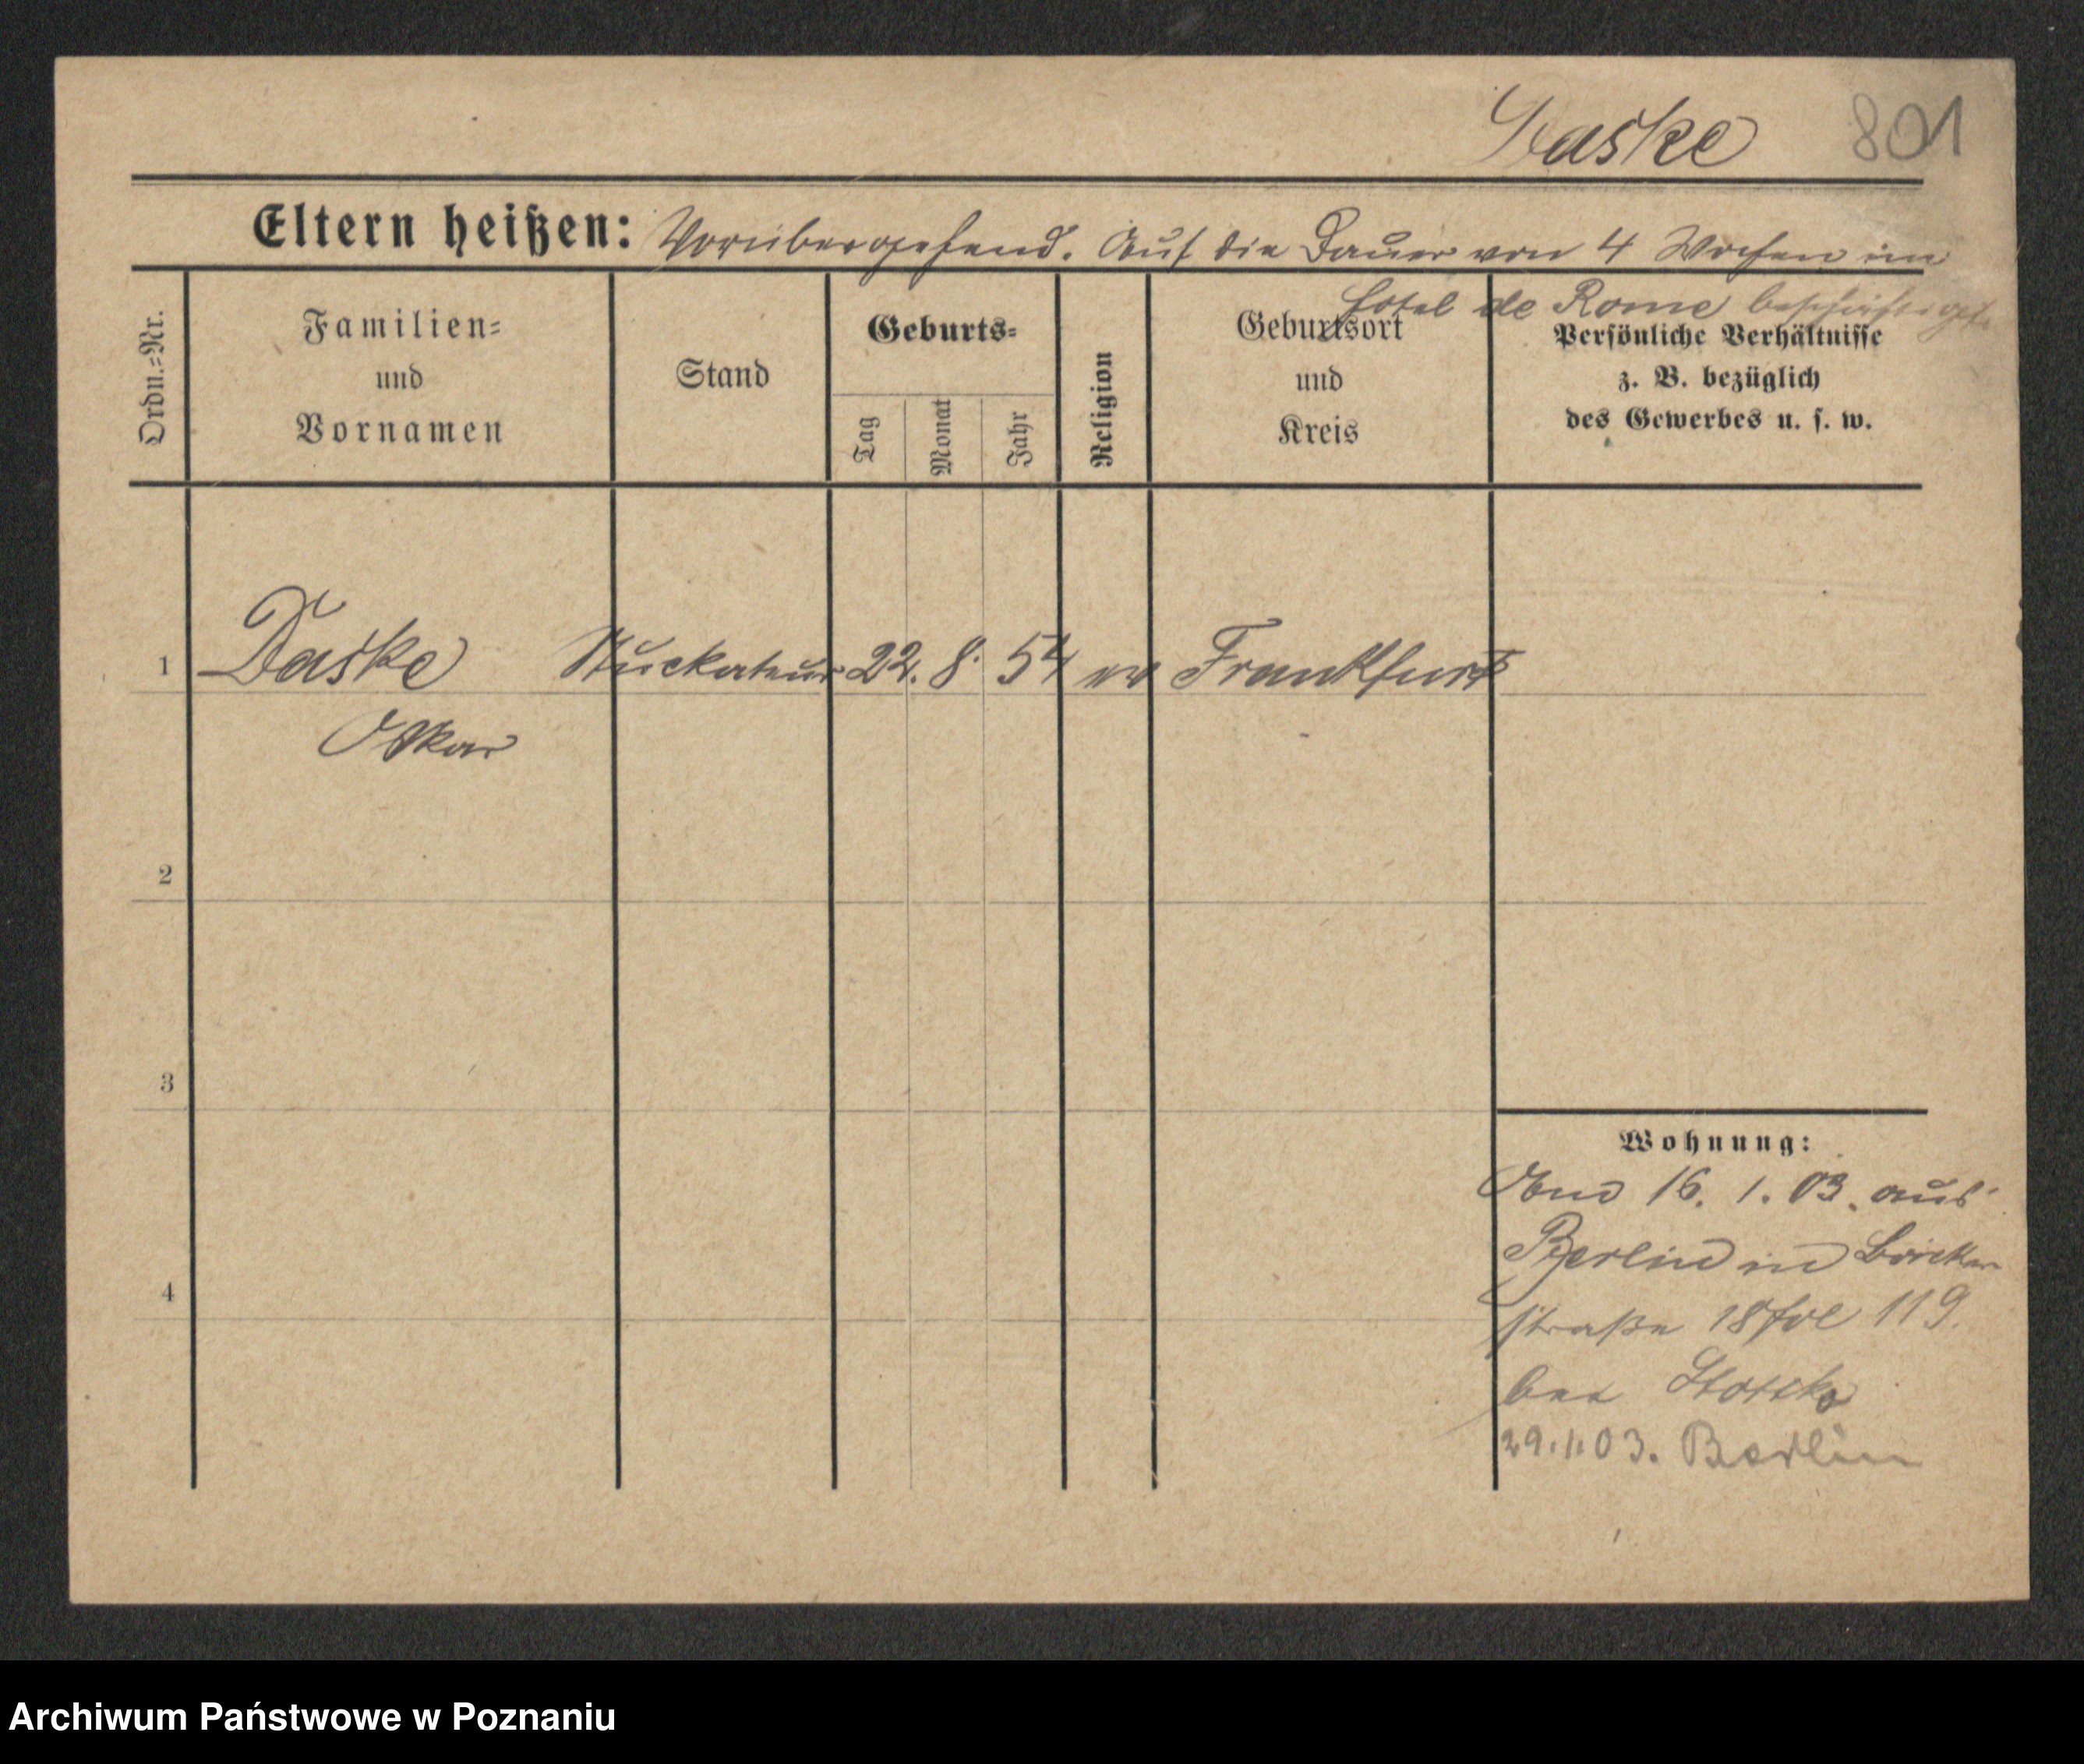 Daske 801
Eltern heißen: Vorübergehend. Auf die Dauer von 4 Wochen im
Hotel de Rome beschäftigt.
Ordn.=Nr.
Familien=
und
Vornamen
Stand
Geburts=
Tag
Monat
Jahr
Religion
Geburtsort
und
Kreis
Persönliche Verhältnisse
z. B. bezüglich
des Gewerbes u. s. w.
1 Daske Stuckateur 22. 8. 54 ev Frankfurt
Oskar
2
3
4
Wohnung:
16. 1. 03. aus
Berlin in Bäcker
straße 18 119.
bei
29.1.03. Berlin
Archiwum Państwowe w Poznaniu